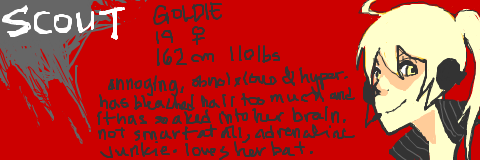 SCOUT
GOLDIE
19 ♀
162cm 110lbs
annoying, obnoxious & hyper.
has bleached hair too much and
it has soaked into her brain.
not smart at all, adrenaline
junkie. loves her bat.